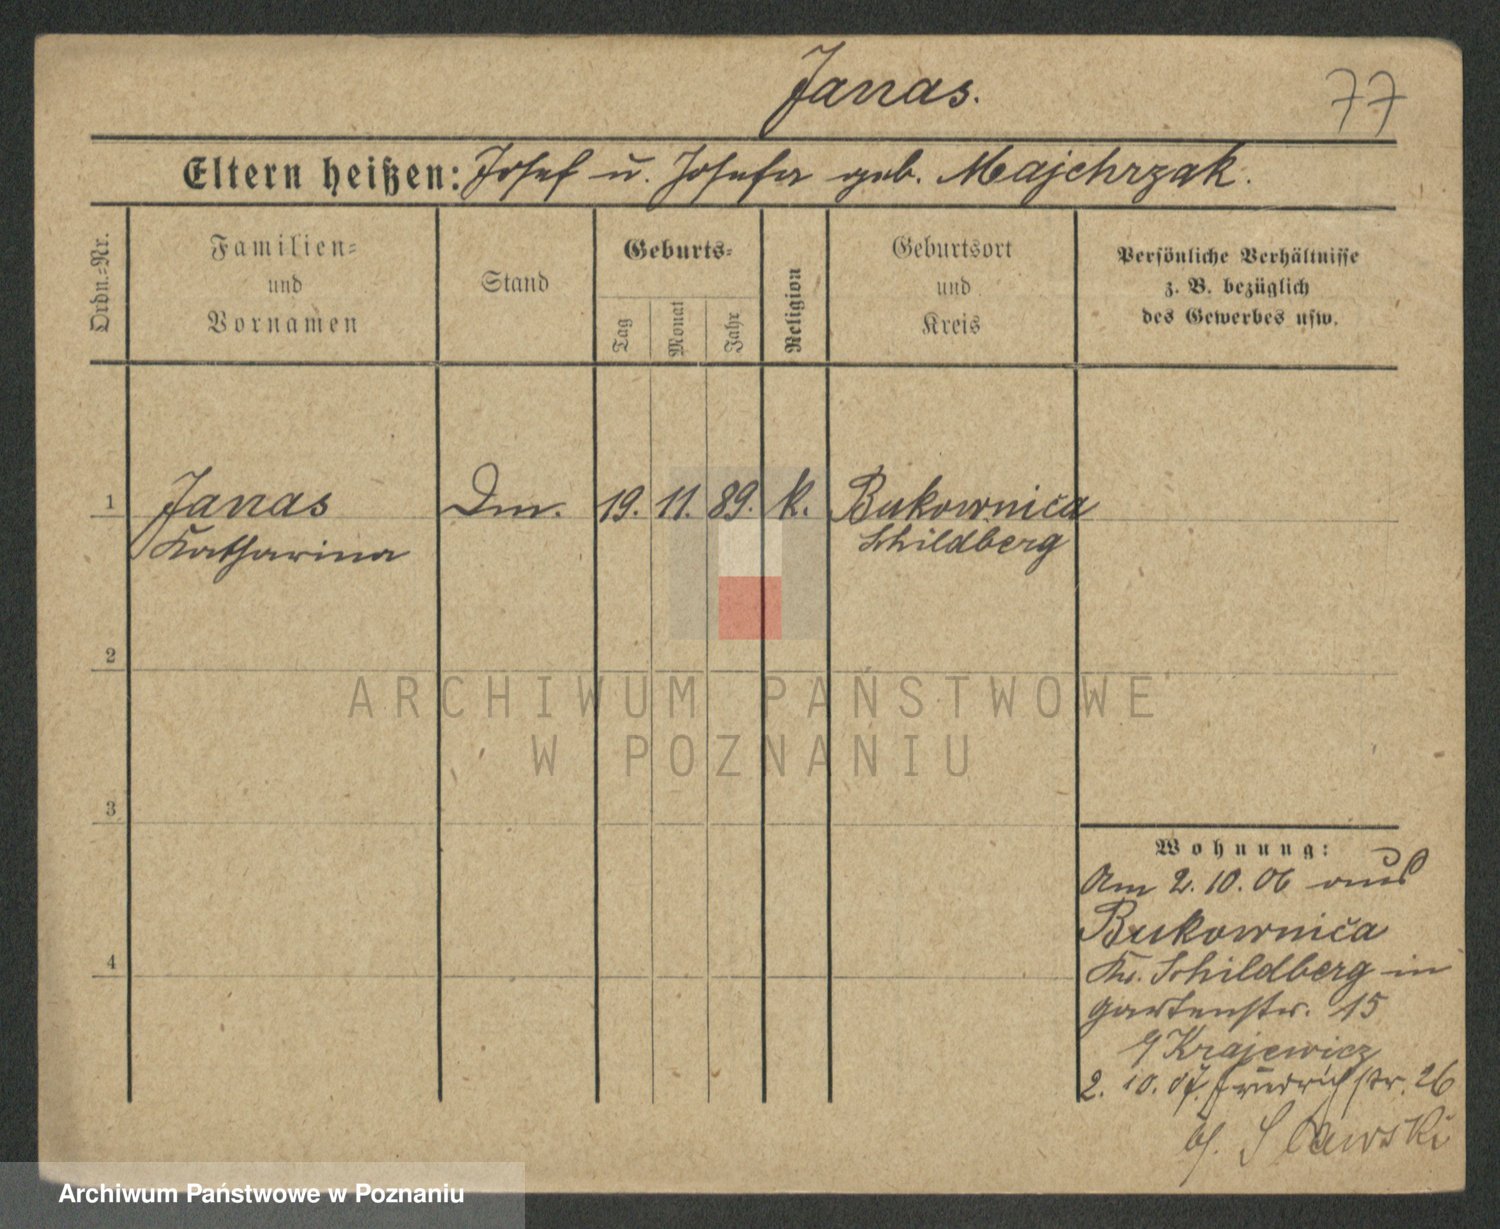 Janas.
77
Eltern heißen: Josef u. Josefa geb. Majchrzak.
Ordn.-Nr.
Familien-
und
Vornamen
Stand
Geburts-
Tag
Monat
Jahr
Religion
Geburtsort
und
Kreis
Persönliche Verhältnisse
z. B. bezüglich
des Gewerbes usw.
1 Janas Dm. 19. 11. 89. k. Bukownica
Katharina Schildberg
2
ARCHIWUM PAŃSTWOWE
W POZNANIU
3
Wohnung:
Am 2. 10. 06 aus
Bukownica
4
Kr. Schildberg in
Gartenstr. 15
Krajewicz
2. 10. 07. Friedrichstr. 26
Slawski
Archiwum Państwowe w Poznaniu